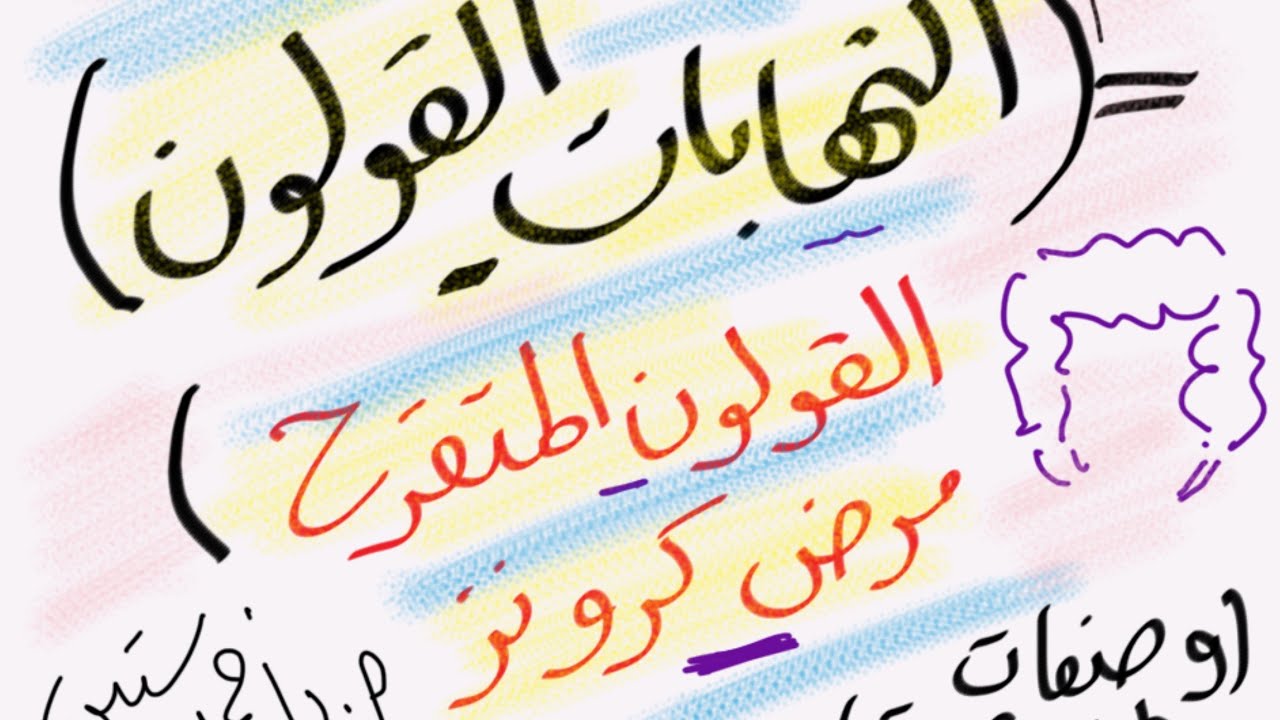 = (التهابات القولون)
القولون المتقرح)
مرض كرونز
(وصفات